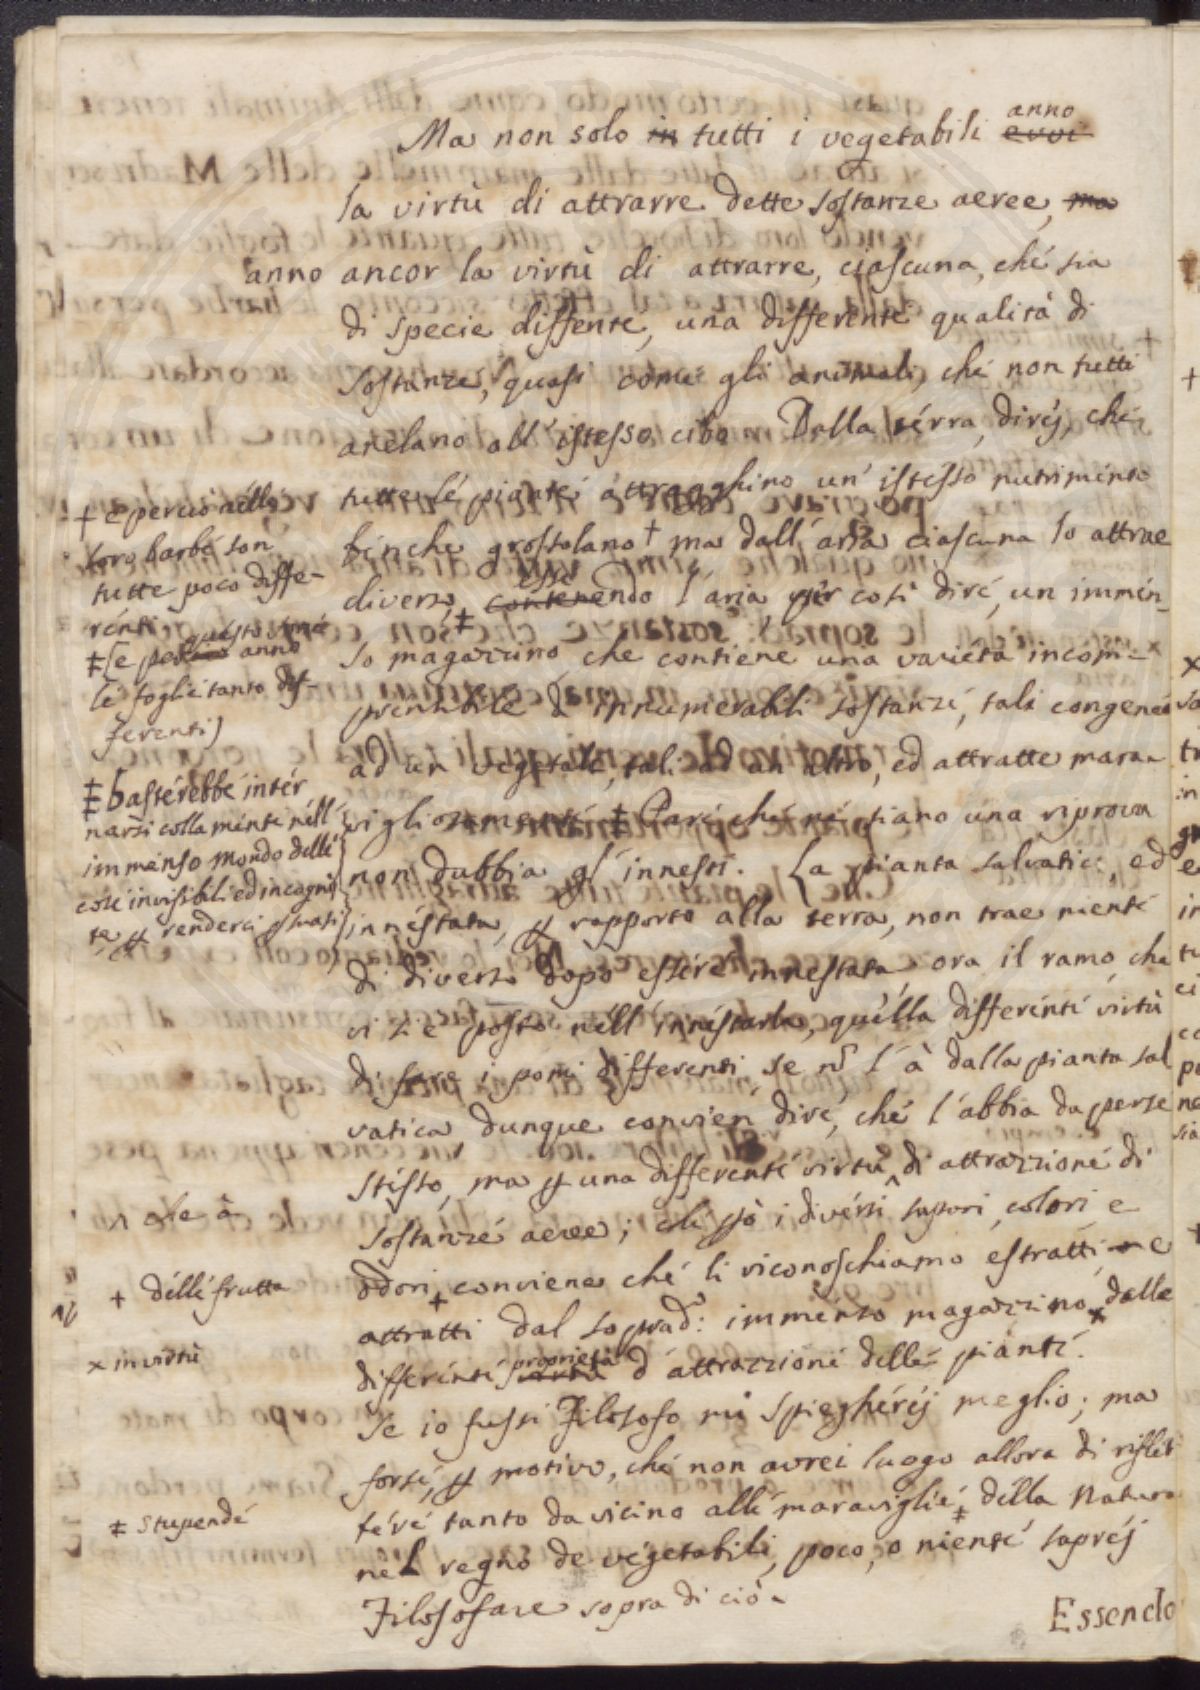 anno
Ma non solo in tutti i vegetabili evvi
la virtù di attrarre dette sostanze aeree, ma
anno ancor la virtù di attrarre, ciascuna, che sia
di specie diffente, una differente qualità di
sostanze, quasi come gli animali, che non tutti
anelano all'istesso cibo. Dalla terra, direj, che
tutte le piante attragghino un'istesso nutrimento
benche grossolano † ma dall'aria ciascuna lo attrae
diverso, ‡ contenendo l'aria per così dire, un immen-
esse
so magazzino che contiene una varietà incom-
prensibile d'innumerabili sostanze, tali congenee
ad un vegetale, tali ad un altro, ed attratte mara-
vigliosamente ‡ Pare che ne siano una riprova
non dubbia gl'innesti. La pianta salvatica, ed
innestata, p rapporto alla terra, non trae niente
di diverso dopo essere innestata ora il ramo, che
vi si è posto nell'innestarla, quella differente virtù
di fare i pomi differenti, se nō l'à dalla pianta sal
vatica dunque convien dire, che l'abbia da perse
stesso, ma p una differente virtù di attrazzione di
sostanze aeree; che però i diversi sapori, colori e
odori + conviene che li riconoschiamo estratti, e
attratti dal sopradᵒ: immenso magazzino x dalle
differenti virtù d'attrazzione delle piante.
proprietà
Se io fussi Filosofo mi spiegherej meglio; ma
forse, p motivo, che non avrei luogo allora di riflet
tere tanto da vicino alle maraviglie ‡ della Natura
nel regno de vegetabili, poco, o niente saprej
Filosofare sopra di ciò.
Essendo
† e perciò nelle
loro barbe son
tutte poco diffe-
renti
‡ (e per anno
le foglie tanto dif-
ferenti)
‡ basterebbe inter
narsi colla mente nell'
immenso mondo delle
cose invisibili ed incogni
te p renderci psuasi
che à
+ delle frutta
x in virtù
‡ stupende